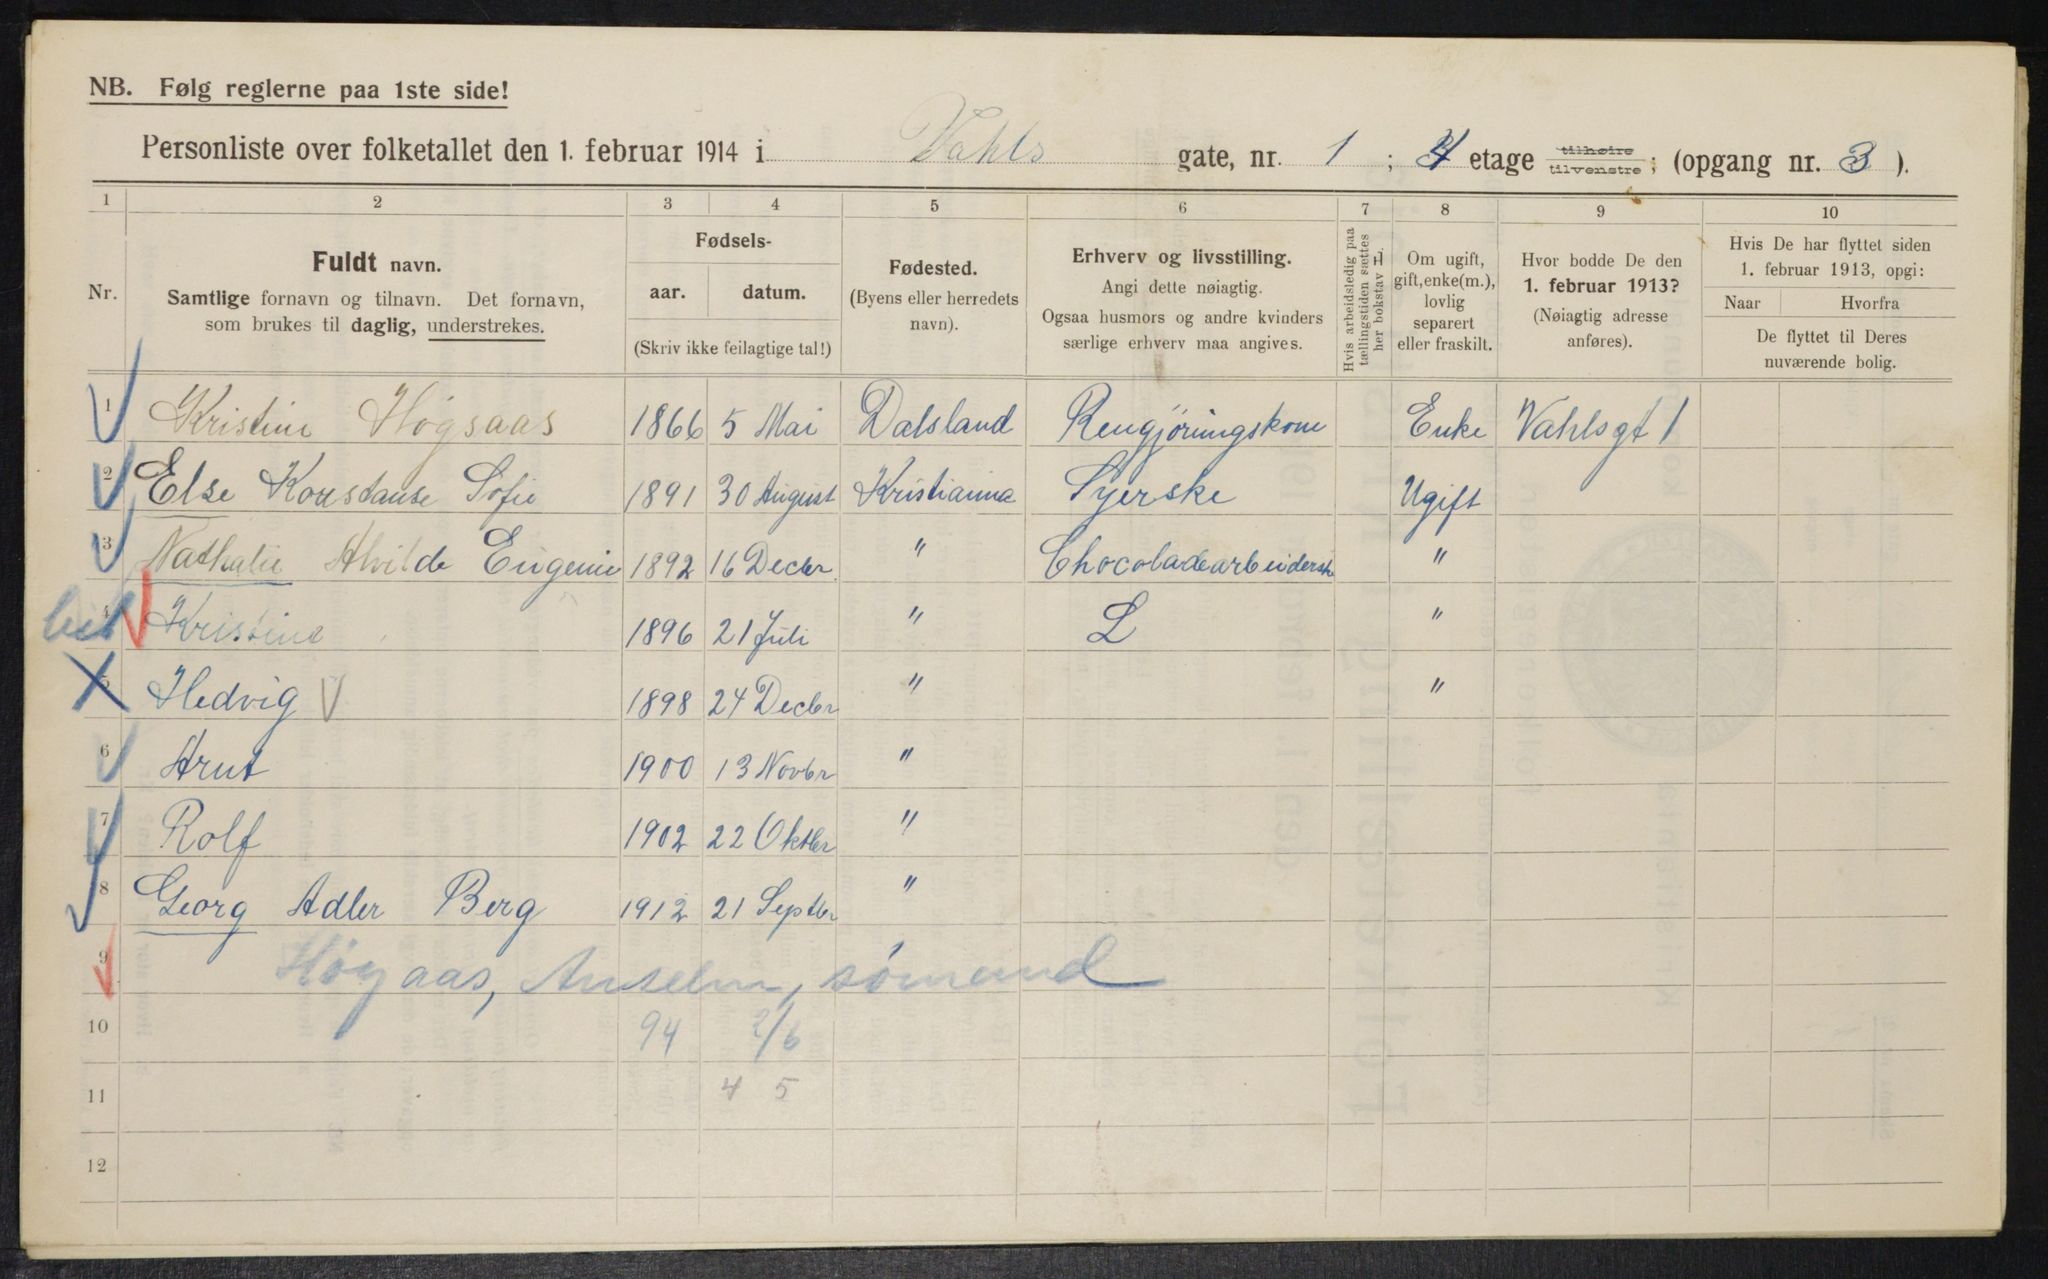 NB. Følg reglerne paa 1ste side!
Personliste over folketallet den 1. februar 1914 i Vahls gate, nr. 1 ; 4 etage tilhøire tilvenstre ; (opgang nr. 3 ).
1 2 3 4 5 6 7 8 9 10
Nr.
Fuldt navn.
Samtlige fornavn og tilnavn. Det fornavn,
som brukes til daglig, understrekes.
Fødsels-
aar. datum.
(Skriv ikke feilagtige tal!)
Fødested.
(Byens eller herredets
navn).
Erhverv og livsstilling.
Angi dette nøiagtig.
Ogsaa husmors og andre kvinders
særlige erhverv maa angives.
Hvis arbeidsledig paa
tællingstiden sættes
her bokstav L.
Om ugift,
gift, enke(m.),
lovlig
separert
eller fraskilt.
Hvor bodde De den
1. februar 1913?
(Nøiagtig adresse
anføres).
Hvis De har flyttet siden
1. februar 1913, opgi:
Naar Hvorfra
De flyttet til Deres
nuværende bolig.
1 Kristine Høgsaas 1866 5 Mai Dalsland Rengjøringskone Enke Vahlsgt 1
2 Else Konstanse Sofie 1891 30 August Kristiania Syerske Ugift
3 Nathalie Alvilde Eugenie 1892 16 Decbr " Chocoladearbeiderske "
4 Kristine 1896 21 Juli " L "
5 Hedvig V 1898 24 Decbr " "
6 Arnt 1900 13 Novbr "
7 Rolf 1902 22 Oktbr "
8 Georg Adler Berg 1912 21 Septbr "
9 Høgaas, Anselm, sømand
10 94 2/6
11 4 5
12